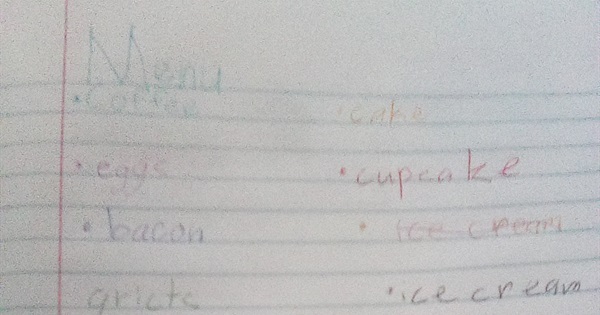 Menu
• coffee
• eggs
• bacon
gricts
• cake
• cupcake
• ice cream
• ice cream